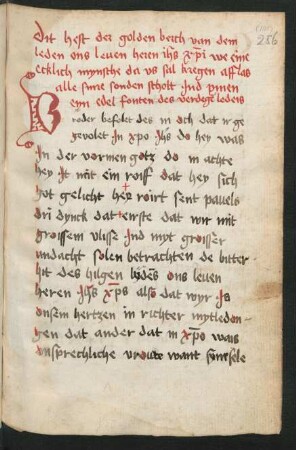 256
Dit hest der golden berch van dem
leden ons leuen heren ihs xpi we eine
etklich mynsche da vs sal kregen afflas
alle sunre sonden scholt Ind pinen
eyn edel fonten des verdegē ledens
Broder befolet des in och dat irge
gevolet In xpo Ihs do hey was
In der vormen gotz do in achte
hey It nit ein roiff dat hey sich
got gelicht hey roirt sent pauels
dri dynck dat eirste dat wir mit
groissem vlisse Ind myt groisser
andacht solen betrachten de bitter
hit des hilgen lidens ons leuen
heren Ihs xps also dat wyr In
onsem hertzen in richter mytledon
gen dat ander dat in xpo was
onsprechliche vroude want syn sele